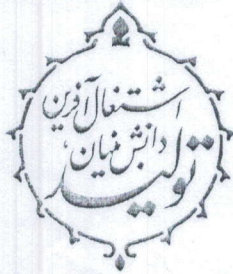 تولید
دانش بنیان،
اشتغال آفرین